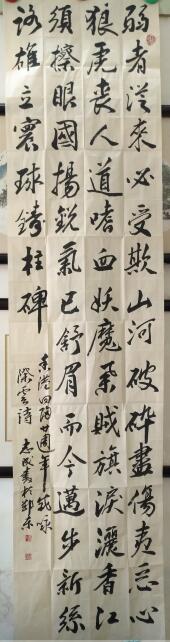 弱者從來必受欺山河破碎盡傷夷忌心
狼虎喪人道嗜血妖魔飛賊旗淚灑香江
須擦眼國揚銳氣已舒眉而今邁步新絲
路雄立寰球鑄柱碑
香港回歸廿週年感詠
深雲詩
志民書於郢東